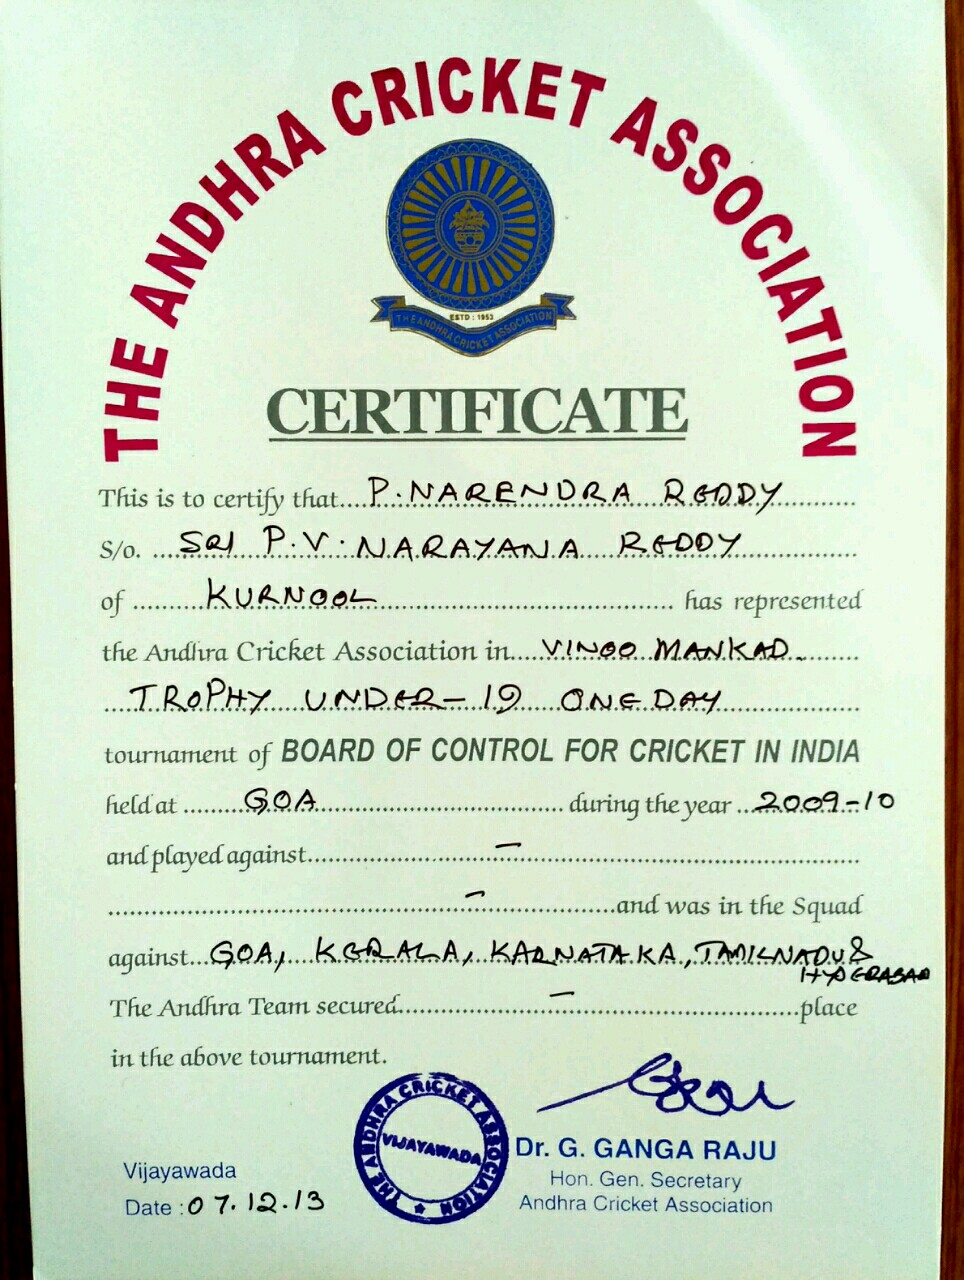 THE ANDHRA CRICKET ASSOCIATION
ESTD : 1953
THE ANDHRA CRICKET ASSOCIATION
CERTIFICATE
This is to certify that....P.NARENDRA REDDY..........
S/o. ....SRI P.V.NARAYANA REDDY..............
of ..........KURNOOL........................................ has represented
the Andhra Cricket Association in.....VINOO MANKAD........
....TROPHY UNDER-19 ONE DAY....................
tournament of BOARD OF CONTROL FOR CRICKET IN INDIA
held at .........GOA................................... during the year ...2009-10
and played against..............................–..................................................
...................................................–....................and was in the Squad
against...GOA, KERALA, KARNATAKA, TAMILNADU &
HYDERABAD
The Andhra Team secured........................–..................................place
in the above tournament.
THE ANDHRA CRICKET ASSOCIATION
VIJAYAWADA
Dr. G. GANGA RAJU
Hon. Gen. Secretary
Andhra Cricket Association
Vijayawada
Date : 07.12.13